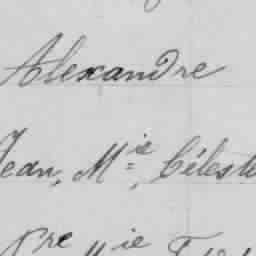 Alexandre
Jean, M.ie, Célest
Pre M.ie